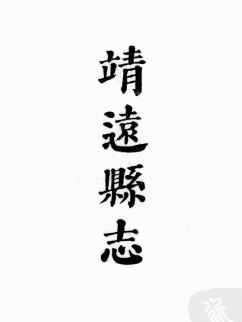 靖遠縣志